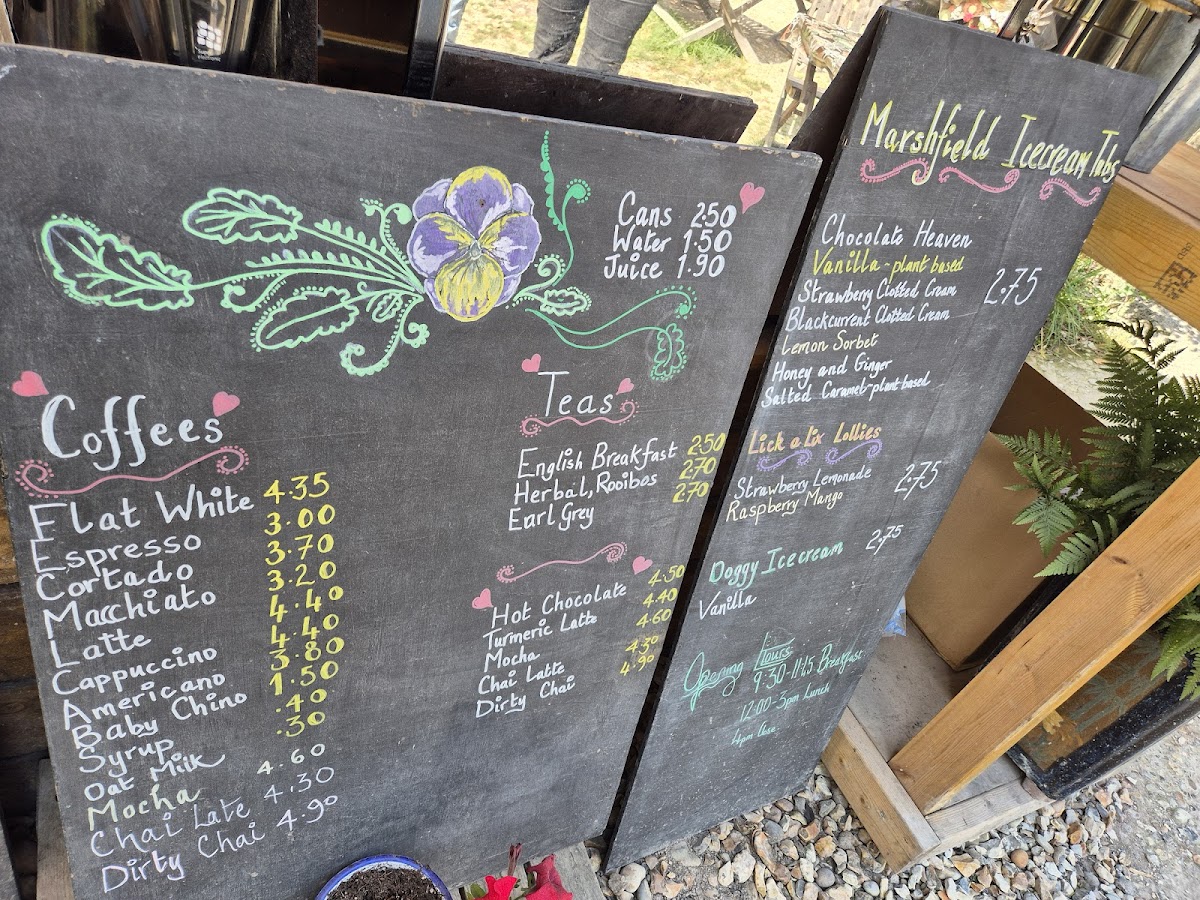 Cans 2.50
Water 1.50
Juice 1.90
Coffees
Flat White 4.35
Espresso 3.00
Cortado 3.70
Macchiato 3.20
Latte 4.40
Cappuccino 4.40
Americano 3.80
Baby Chino 1.50
Syrup .40
Oat Milk .30
Mocha 4.60
Chai Late 4.30
Dirty Chai 4.90
Teas
English Breakfast 2.50
Herbal, Rooibos 2.70
Earl Grey 2.70
Hot Chocolate 4.50
Turmeric Latte 4.40
Mocha 4.60
Chai Latte 4.30
Dirty Chai 4.90
Marshfield Icecream Tubs
Chocolate Heaven
Vanilla - plant based
Strawberry Clotted Cream 2.75
Blackcurrent Clotted Cream
Lemon Sorbet
Honey and Ginger
Salted Caramel - plant based
Lick a lix Lollies
Strawberry Lemonade 2.75
Raspberry Mango
Doggy Ice cream 2.75
Vanilla
Opening Hours
9:30-11:15 Breakfast
12:00-3pm Lunch
4pm